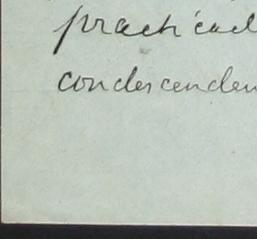 practical
condescenden